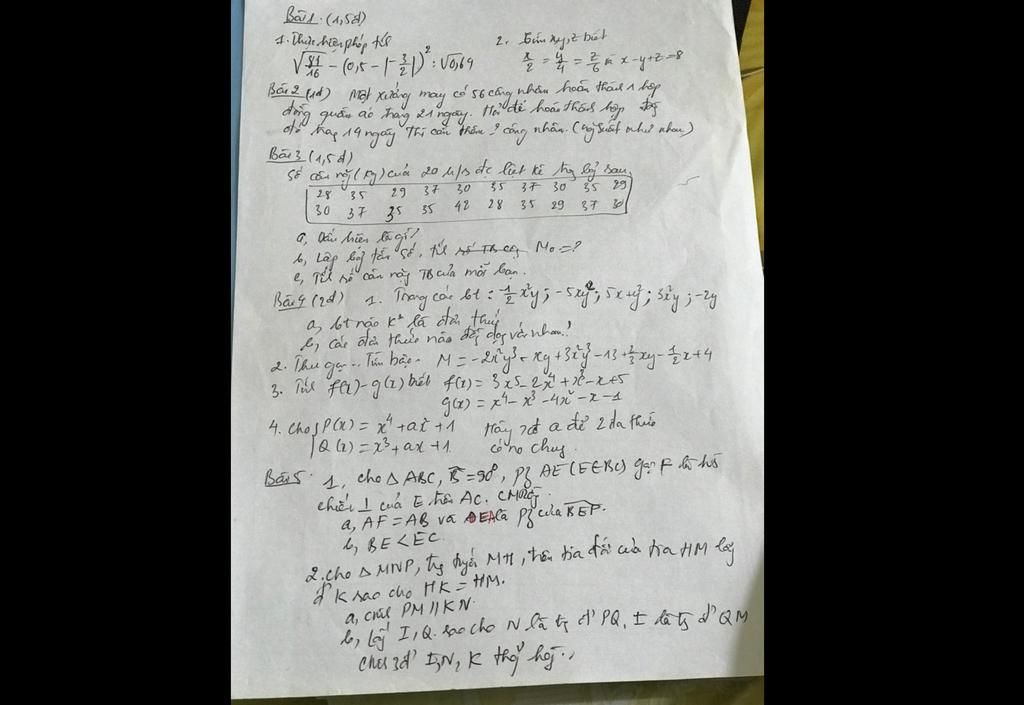 Bài 1. (1,5đ)
1. Thực hiện phép tính 2. Tìm x, y, z biết
√(81/16) - (0,5 - |-3/2|)² : √0,69 x/2 = y/4 = z/6 và x - y + z = 8
Bài 2 (1đ) Một xưởng may có 56 công nhân hoàn thành 1 hợp
đồng quần áo trong 21 ngày. Hỏi để hoàn thành hợp đồng
đó trong 14 ngày thì cần thêm ? công nhân. (năng suất như nhau)
Bài 3 (1,5đ)
Số cân nặng (kg) của 20 h/s đc liệt kê trong bảng sau.
28 35 29 37 30 35 37 30 35 29
30 37 35 35 42 28 35 29 37 30
a, Dấu hiệu là gì?
b, Lập bảng tần số, tính số TB cộng M₀ = ?
c, Tính số cân nặng TB của mỗi bạn.
Bài 4 (2đ) 1. Trong các bt : -1/2 x²y ; -5xy² ; 5x+y² ; 3x²y ; -2y
a, bt nào k° là đơn thức
b, các đơn thức nào đồng dạng với nhau?
2. Thu gọn .. Tìm bậc. M = -2x²y³ - xy + 3x²y³ - 13 + 2/3 xy - 1/2 x + 4
3. Tính f(x) - g(x) biết f(x) = 3x5 - 2x⁴ + x³ - x + 5
g(x) = x⁴ - x³ - 4x² - x - 1
4. Cho { P(x) = x⁴ + ax² + 1 Hãy xđ a để 2 đa thức
Q(x) = x³ + ax + 1 có no chung.
Bài 5. 1, cho △ABC, B̂ = 90°, pg AE (E∈BC) gọi F là hình
chiếu ⊥ của E trên AC. CM rằng
a, AF = AB và EA là pg của BEF.
b, BE < EC.
2. cho △MNP, trg tuyến MH, trên tia đối của tia HM lấy
đ' K sao cho HK = HM.
a, cm PM // KN
b, Lấy I, Q. sao cho N là tg đ' PQ, I là tg đ' QM
CM 3 đ' I, N, K thẳng hàng.